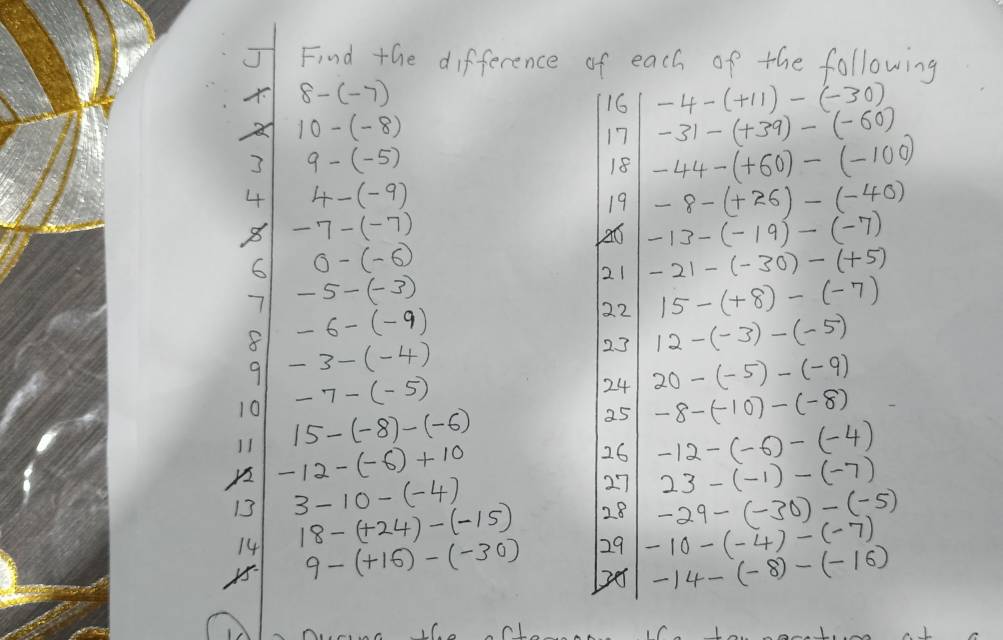 J Find the difference of each of the following
1 8-(-7)
2 10-(-8)
3 9-(-5)
4 4-(-9)
5 -7-(-7)
6 0-(-6)
7 -5-(-3)
8 -6-(-9)
9 -3-(-4)
10 -7-(-5)
11 15-(-8)-(-6)
12 -12-(-6)+10
13 3-10-(-4)
14 18-(+24)-(-15)
15 9-(+16)-(-30)
16 -4-(+11)-(-30)
17 -31-(+39)-(-60)
18 -44-(+60)-(-100)
19 -8-(+26)-(-40)
20 -13-(-19)-(-7)
21 -21-(-30)-(+5)
22 15-(+8)-(-7)
23 12-(-3)-(-5)
24 20-(-5)-(-9)
25 -8-(-10)-(-8)
26 -12-(-6)-(-4)
27 23-(-1)-(-7)
28 -29-(-30)-(-5)
29 -10-(-4)-(-7)
30 -14-(-8)-(-16)
During the